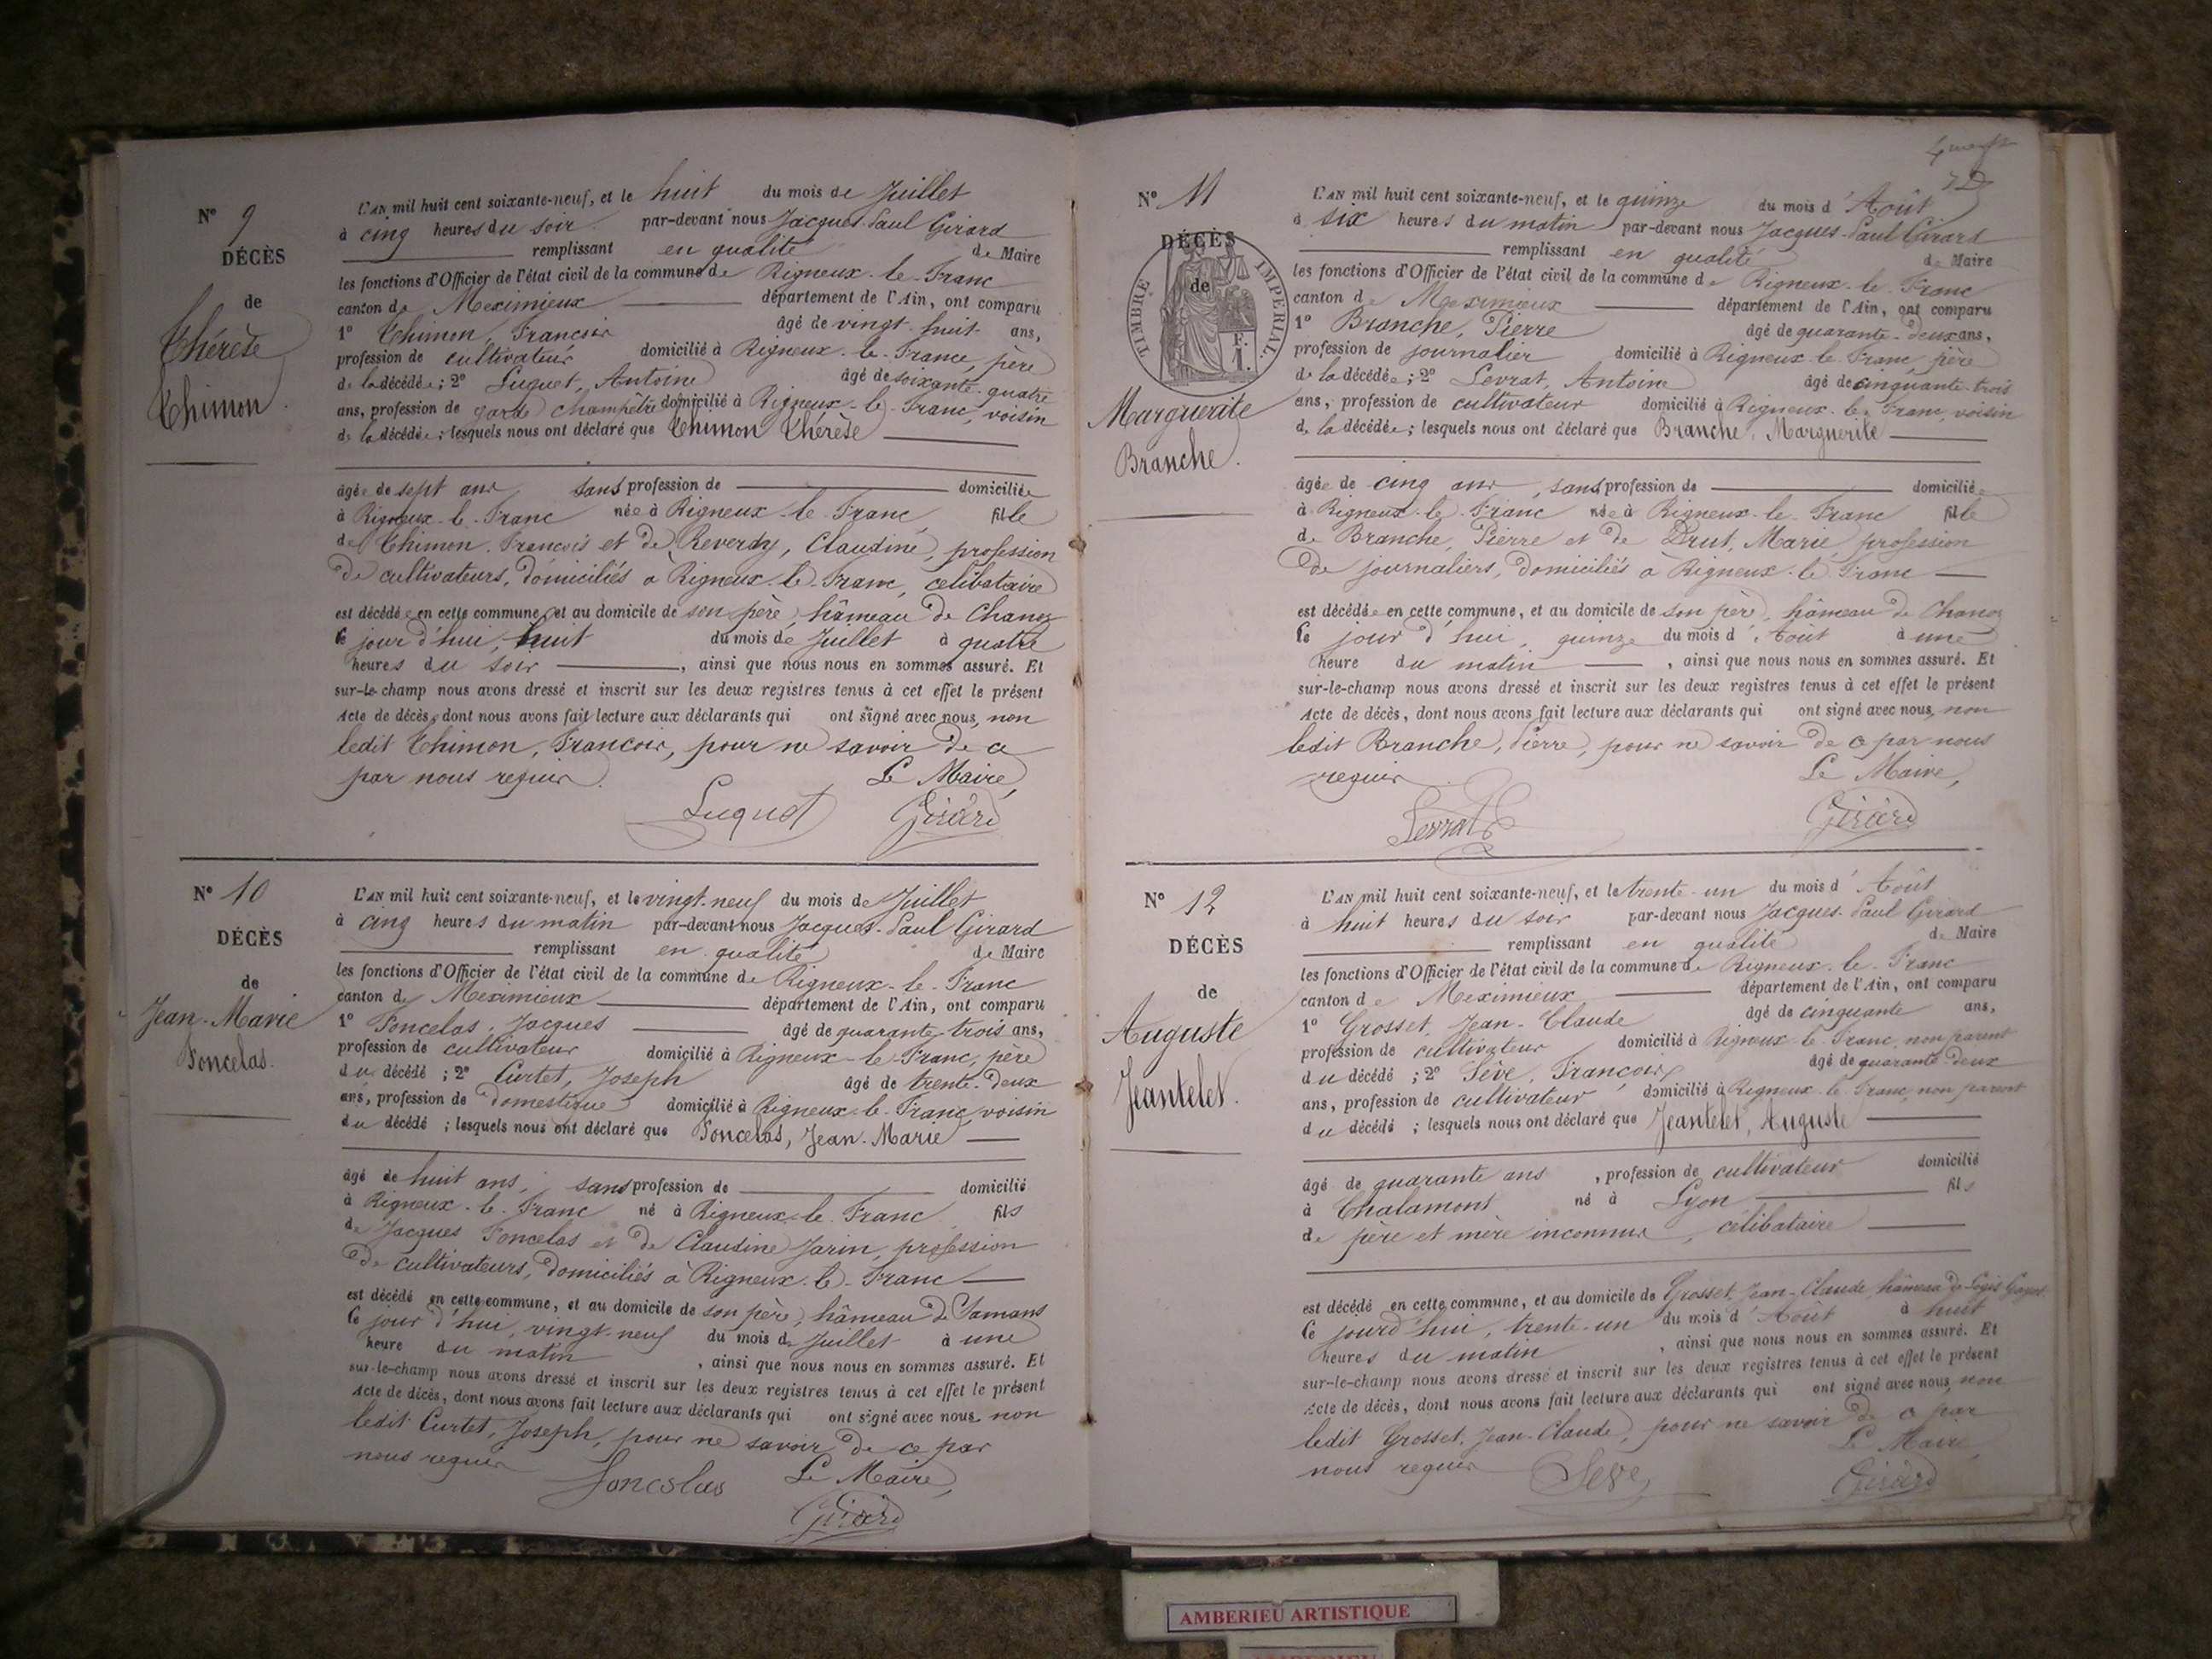 N° 9
DÉCÈS
de
Thérèse
Thimon.
L'AN mil huit cent soixante-neuf, et le huit du mois de Juillet
à cinq heures du soir par-devant nous Jacques-Paul Girard
remplissant en qualité de Maire
les fonctions d'Officier de l'état civil de la commune de Rigneux-le-Franc
canton de Meximieux département de l'Ain, ont comparu
1° Thimon, François âgé de vingt-huit ans,
profession de cultivateur domicilié à Rigneux-le-Franc, père
de la décédée; 2° Luquet, Antoine âgé de soixante-quatre
ans, profession de garde champêtre domicilié à Rigneux-le-Franc, voisin
de la décédée; lesquels nous ont déclaré que Thimon Thérèse
âgée de sept ans, sans profession de domiciliée
à Rigneux-le-Franc née à Rigneux-le-Franc, fille
de Thimon François et de Reverdy, Claudine, profession
de cultivateurs, domiciliés à Rigneux-le-Franc, célibataire
est décédée en cette commune, et au domicile de son père, hâmeau de Chanoz
le jour d'hui, huit du mois de Juillet à quatre
heures du soir, ainsi que nous nous en sommes assuré. Et
sur-le-champ nous avons dressé et inscrit sur les deux registres tenus à cet effet le présent
Acte de décès, dont nous avons fait lecture aux déclarants qui ont signé avec nous, non
ledit Thimon, François, pour ne savoir de ce
par nous requis. Le Maire,
Luquet Girard
N° 10
DÉCÈS
de
Jean-Marie
Poncelas.
L'AN mil huit cent soixante-neuf, et le vingt-neuf du mois de Juillet
à cinq heures du matin par-devant nous Jacques-Paul Girard
remplissant en qualité de Maire
les fonctions d'Officier de l'état civil de la commune de Rigneux-le-Franc
canton de Meximieux département de l'Ain, ont comparu
1° Poncelas, Jacques âgé de quarante-trois ans,
profession de cultivateur domicilié à Rigneux-le-Franc, père
du décédé; 2° Curtet, Joseph âgé de trente-deux
ans, profession de domestique domicilié à Rigneux-le-Franc, voisin
du décédé; lesquels nous ont déclaré que Poncelas, Jean-Marie
âgé de huit ans, sans profession de domicilié
à Rigneux-le-Franc né à Rigneux-le-Franc fils
de Jacques Poncelas et de Claudine Jarin, profession
de cultivateurs, domiciliés à Rigneux-le-Franc
est décédé en cette commune, et au domicile de son père, hâmeau de Samans
le jour d'hui, vingt-neuf du mois de Juillet à une
heure du matin, ainsi que nous nous en sommes assuré. Et
sur-le-champ nous avons dressé et inscrit sur les deux registres tenus à cet effet le présent
Acte de décès, dont nous avons fait lecture aux déclarants qui ont signé avec nous, non
ledit Curtet, Joseph, pour ne savoir de ce par
nous requis Le Maire,
Poncelas Girard
N° 11
DÉCÈS
de
TIMBRE IMPÉRIAL
F.
1.
Marguerite
Branche.
L'AN mil huit cent soixante-neuf, et le quinze du mois d'Août
à six heures du matin par-devant nous Jacques-Paul Girard
remplissant en qualité de Maire
les fonctions d'Officier de l'état civil de la commune de Rigneux-le-Franc
canton de Meximieux département de l'Ain, ont comparu
1° Branche, Pierre âgé de quarante-deux ans,
profession de journalier domicilié à Rigneux-le-Franc, père
de la décédée; 2° Levrat, Antoine âgé de cinquante-trois
ans, profession de cultivateur domicilié à Rigneux-le-Franc, voisin
de la décédée; lesquels nous ont déclaré que Branche, Marguerite
âgée de cinq ans, sans profession de domiciliée
à Rigneux-le-Franc née à Rigneux-le-Franc fille
de Branche, Pierre et de Drut, Marie, profession
de journaliers, domiciliés à Rigneux-le-Franc
est décédée en cette commune, et au domicile de son père, hâmeau de Chanoz
le jour d'hui, quinze du mois d'Août à une
heure du matin, ainsi que nous nous en sommes assuré. Et
sur-le-champ nous avons dressé et inscrit sur les deux registres tenus à cet effet le présent
Acte de décès, dont nous avons fait lecture aux déclarants qui ont signé avec nous, non
ledit Branche, Pierre, pour ne savoir de ce par nous
requis. Le Maire,
Levrat Girard
N° 12
DÉCÈS
de
Auguste
Jeantelet.
L'AN mil huit cent soixante-neuf, et le trente-un du mois d'Août
à huit heures du soir par-devant nous Jacques-Paul Girard
remplissant en qualité de Maire
les fonctions d'Officier de l'état civil de la commune de Rigneux-le-Franc
canton de Meximieux département de l'Ain, ont comparu
1° Grosset, Jean-Claude âgé de cinquante ans,
profession de cultivateur domicilié à Rigneux-le-Franc, non parent
du décédé; 2° Sève, François âgé de quarante-deux
ans, profession de cultivateur domicilié à Rigneux-le-Franc, non parent
du décédé; lesquels nous ont déclaré que Jeantelet, Auguste
âgé de quarante ans, profession de cultivateur domicilié
à Chalamont né à Lyon fils
de père et mère inconnus, célibataire
est décédé en cette commune, et au domicile de Grosset, Jean-Claude, hâmeau de Logis
le jourd'hui, trente-un du mois d'Août à huit
heures du matin, ainsi que nous nous en sommes assuré. Et
sur-le-champ nous avons dressé et inscrit sur les deux registres tenus à cet effet le présent
Acte de décès, dont nous avons fait lecture aux déclarants qui ont signé avec nous, non
ledit Grosset, Jean-Claude, pour ne savoir de ce par
nous requis Le Maire,
Seve Girard
AMBERIEU ARTISTIQUE